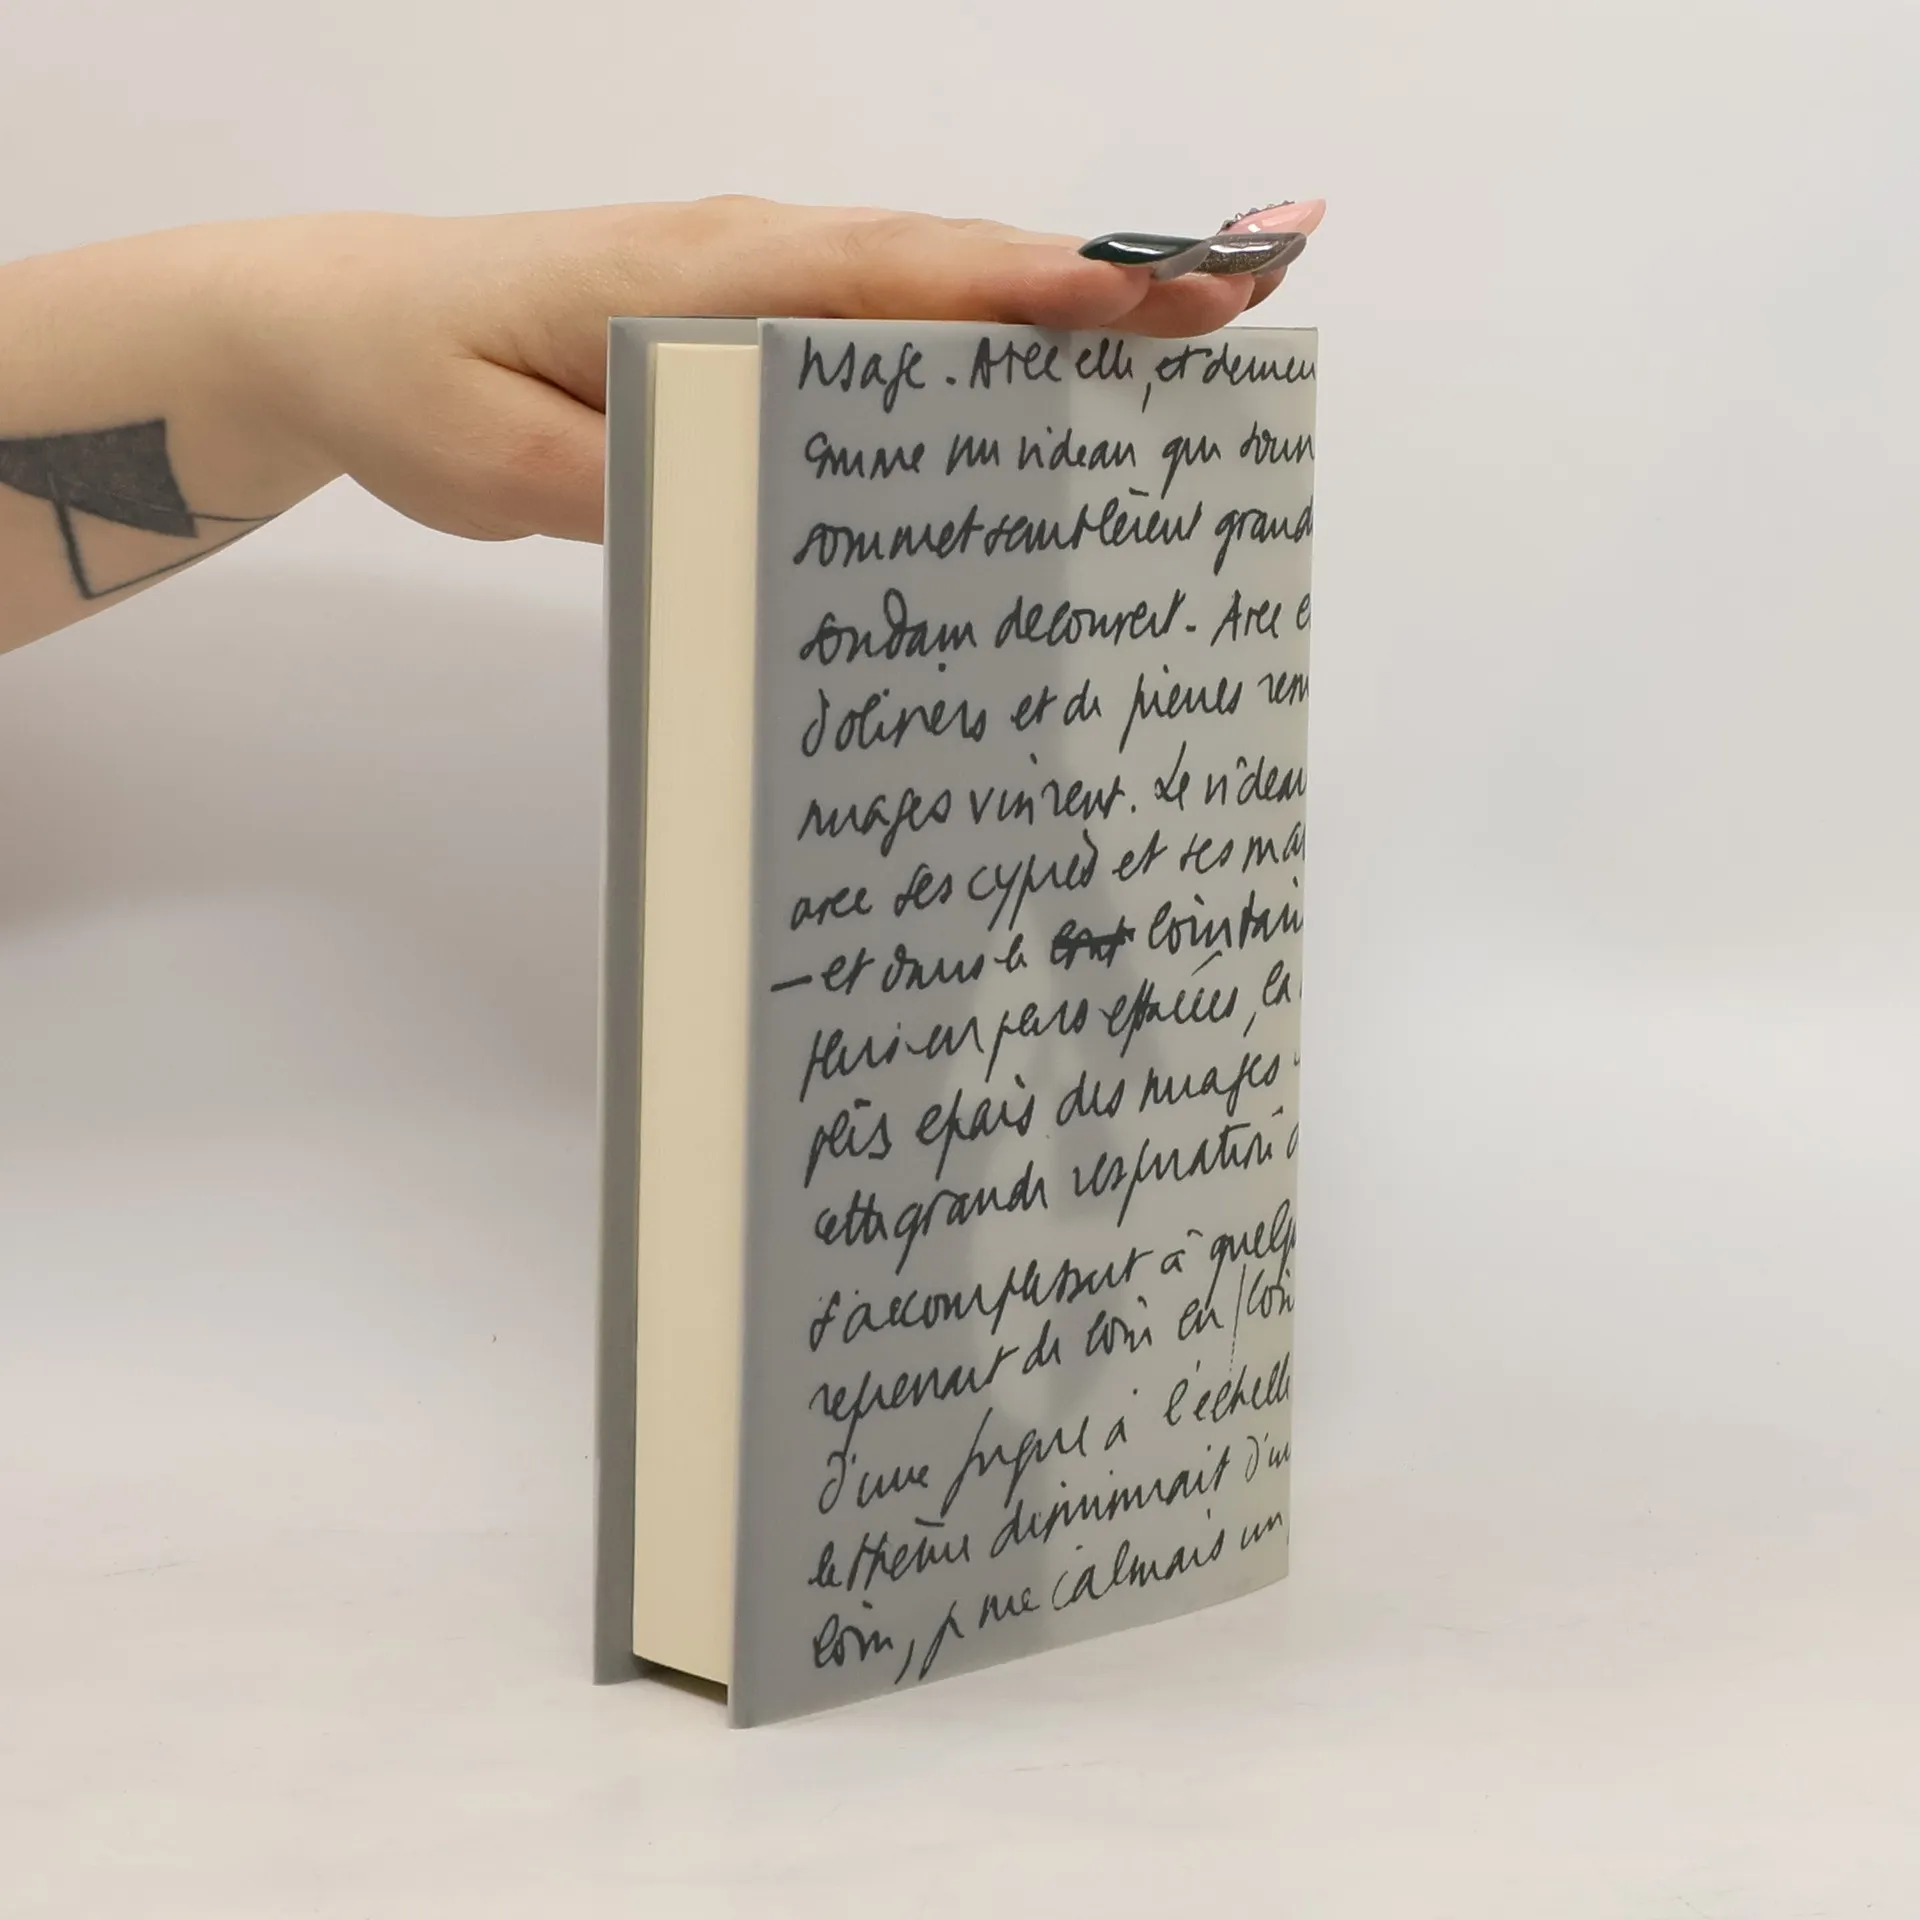 Avec elle, et
comme un rideau qui
sommet semblèrent grand
soudain découvert. Avec e
d'oliviers et de pierres
nuages vinrent. Le rideau
avec ses cyprès et ses ma
– et dans le lointain
en plus effacées, la
plus épais des nuages
cette grande respiration d
s'accomplissait à quelq
reprenait de loin en loin
d'une fugue à l'échelle
le thème diminuait d'un
loin, je me calmais un